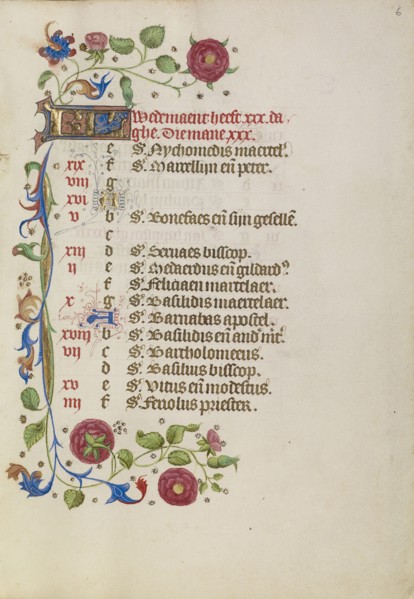 6
Wedemaent heeft .xxx. da
ghe. Die mane .xxx.
e S. Nychomedis maertel.
xix f S. Marcellijn eñ peter.
viij g
xvi A
v b S. Bonefaes eñ sijn gesellē.
c
xiij d S. Servaes bisscop.
ij e S. Medardus eñ gildard⁹.
f S. Feliciaen martelaer.
x g S. Basilidis maertelaer.
A S. Barnabas apostel.
xviij b S. Basilidis eñ
vij c S. Bartholomeeus.
d S. Basilius bisscop.
xv e S. Vitus eñ modestus.
iiij f S. Feriolus priester.